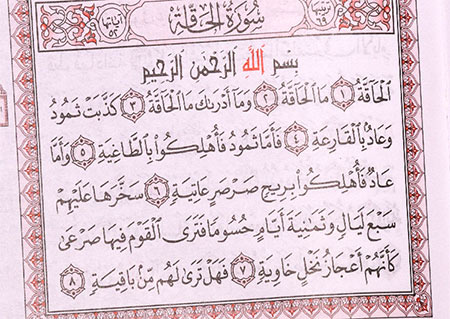 ترتيبها ٦٩ سُورَةُ الْحَاقَّةِ آياتها ٥٢
بِسْمِ اللَّهِ الرَّحْمَٰنِ الرَّحِيمِ
الْحَاقَّةُ ١ مَا الْحَاقَّةُ ٢ وَمَا أَدْرَاكَ مَا الْحَاقَّةُ ٣ كَذَّبَتْ ثَمُودُ
وَعَادٌ بِالْقَارِعَةِ ٤ فَأَمَّا ثَمُودُ فَأُهْلِكُوا بِالطَّاغِيَةِ ٥ وَأَمَّا
عَادٌ فَأُهْلِكُوا بِرِيحٍ صَرْصَرٍ عَاتِيَةٍ ٦ سَخَّرَهَا عَلَيْهِمْ
سَبْعَ لَيَالٍ وَثَمَٰنِيَةَ أَيَّامٍ حُسُومًا فَتَرَى الْقَوْمَ فِيهَا صَرْعَىٰ
كَأَنَّهُمْ أَعْجَازُ نَخْلٍ خَاوِيَةٍ ٧ فَهَلْ تَرَىٰ لَهُم مِّنۢ بَاقِيَةٍ ٨